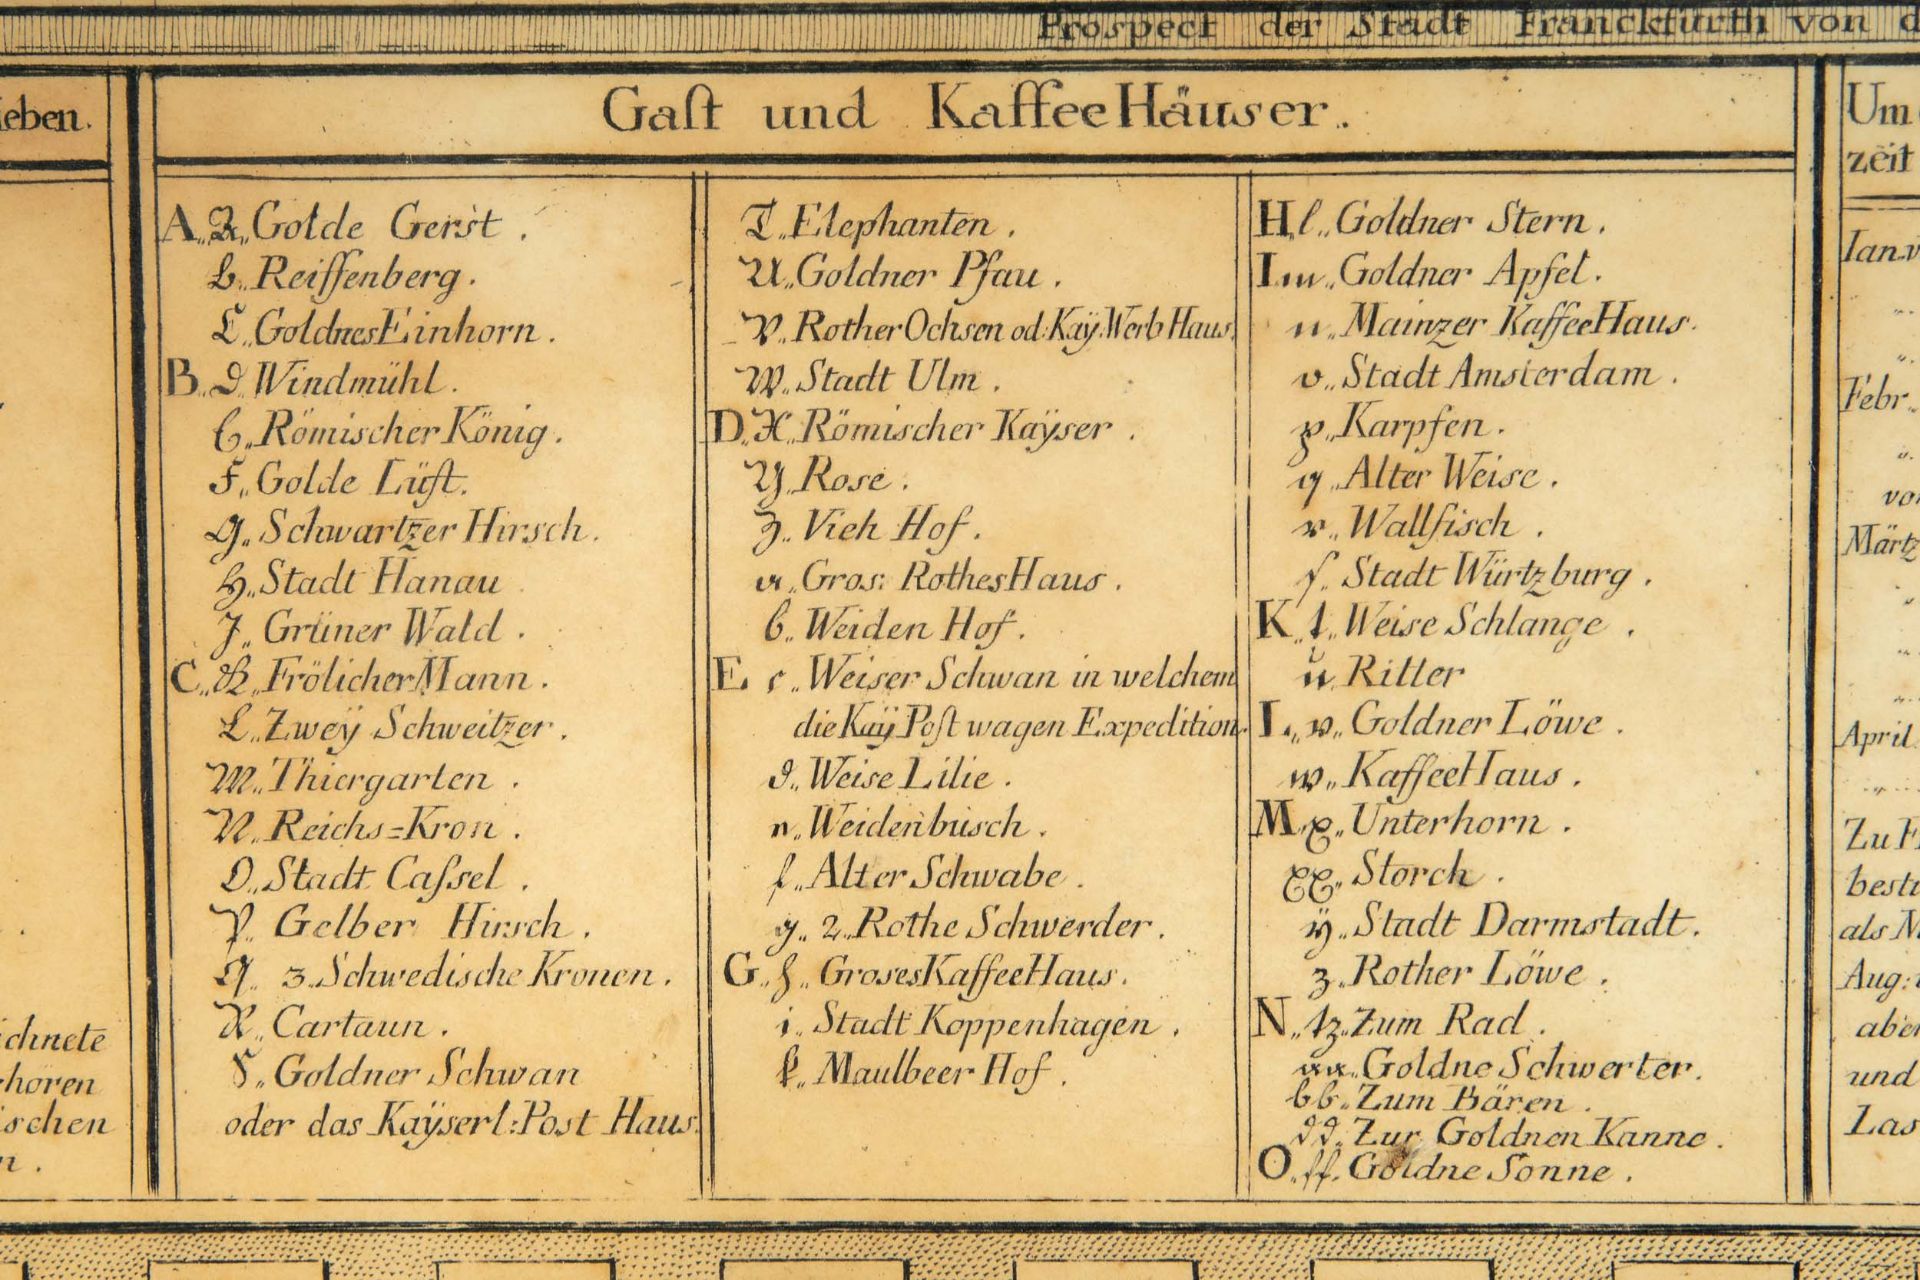 Prospect der Stadt Franckfurth von d
ieben.
Gaſt und Kaffee Häuser.
Um
zeit
A.. A.. Golde Gerst.
B.. Reiffenberg.
C.. Goldnes Einhorn.
B.. D.. Windmühl.
E.. Römischer König.
F.. Golde Lüft.
G.. Schwartzer Hirsch.
H.. Stadt Hanau
J.. Grüner Wald.
C.. K.. Frölicher Mann.
L.. Zweÿ Schweitzer.
M.. Thiergarten.
N.. Reichs=Kron.
O.. Stadt Caſsel.
P.. Gelber Hirsch.
Q.. 3. Schwedische Kronen.
R.. Cartaun.
S.. Goldner Schwan
oder das Kaÿserl: Post Haus.
T.. Elephanten.
U.. Goldner Pfau.
V.. Rother Ochsen od: Kaÿ. Werb Haus.
W.. Stadt Ulm.
D.. X.. Römischer Kaÿser.
Y.. Rose.
Z.. Vieh Hof.
a.. Gros: Rothes Haus.
b.. Weiden Hof.
E c.. Weiser Schwan in welchem
die Kaÿ Poſt wagen Expedition.
d.. Weise Lilie.
n.. Weidenbusch.
f.. Alter Schwabe.
g.. 2.. Rothe Schwerder.
G.. h.. Groses Kaffee Haus.
i.. Stadt Koppenhagen.
k.. Maulbeer Hof.
H.. l.. Goldner Stern.
I.. m.. Goldner Apfel.
n.. Mainzer Kaffee Haus.
o.. Stadt Amsterdam.
p.. Karpfen.
q.. Alter Weise.
r.. Wallfisch.
ſ.. Stadt Würtzburg.
K.. t.. Weise Schlange.
u.. Ritter
L.. v.. Goldner Löwe.
w.. Kaffee Haus.
M.. x.. Unterhorn.
xx.. Storch.
ÿ.. Stadt Darmstadt.
z.. Rother Löwe.
N.. tz.. Zum Rad.
aa.. Goldne Schwerter.
bb.. Zum Bären.
dd.. Zur Goldnen Kanne.
O.. ff. Goldne Sonne.
ichnete
horen
ischen
n.
Ian.
Febr..
vo
Märtz
April
Zu F
best
als M
Aug:
aber
und
Las